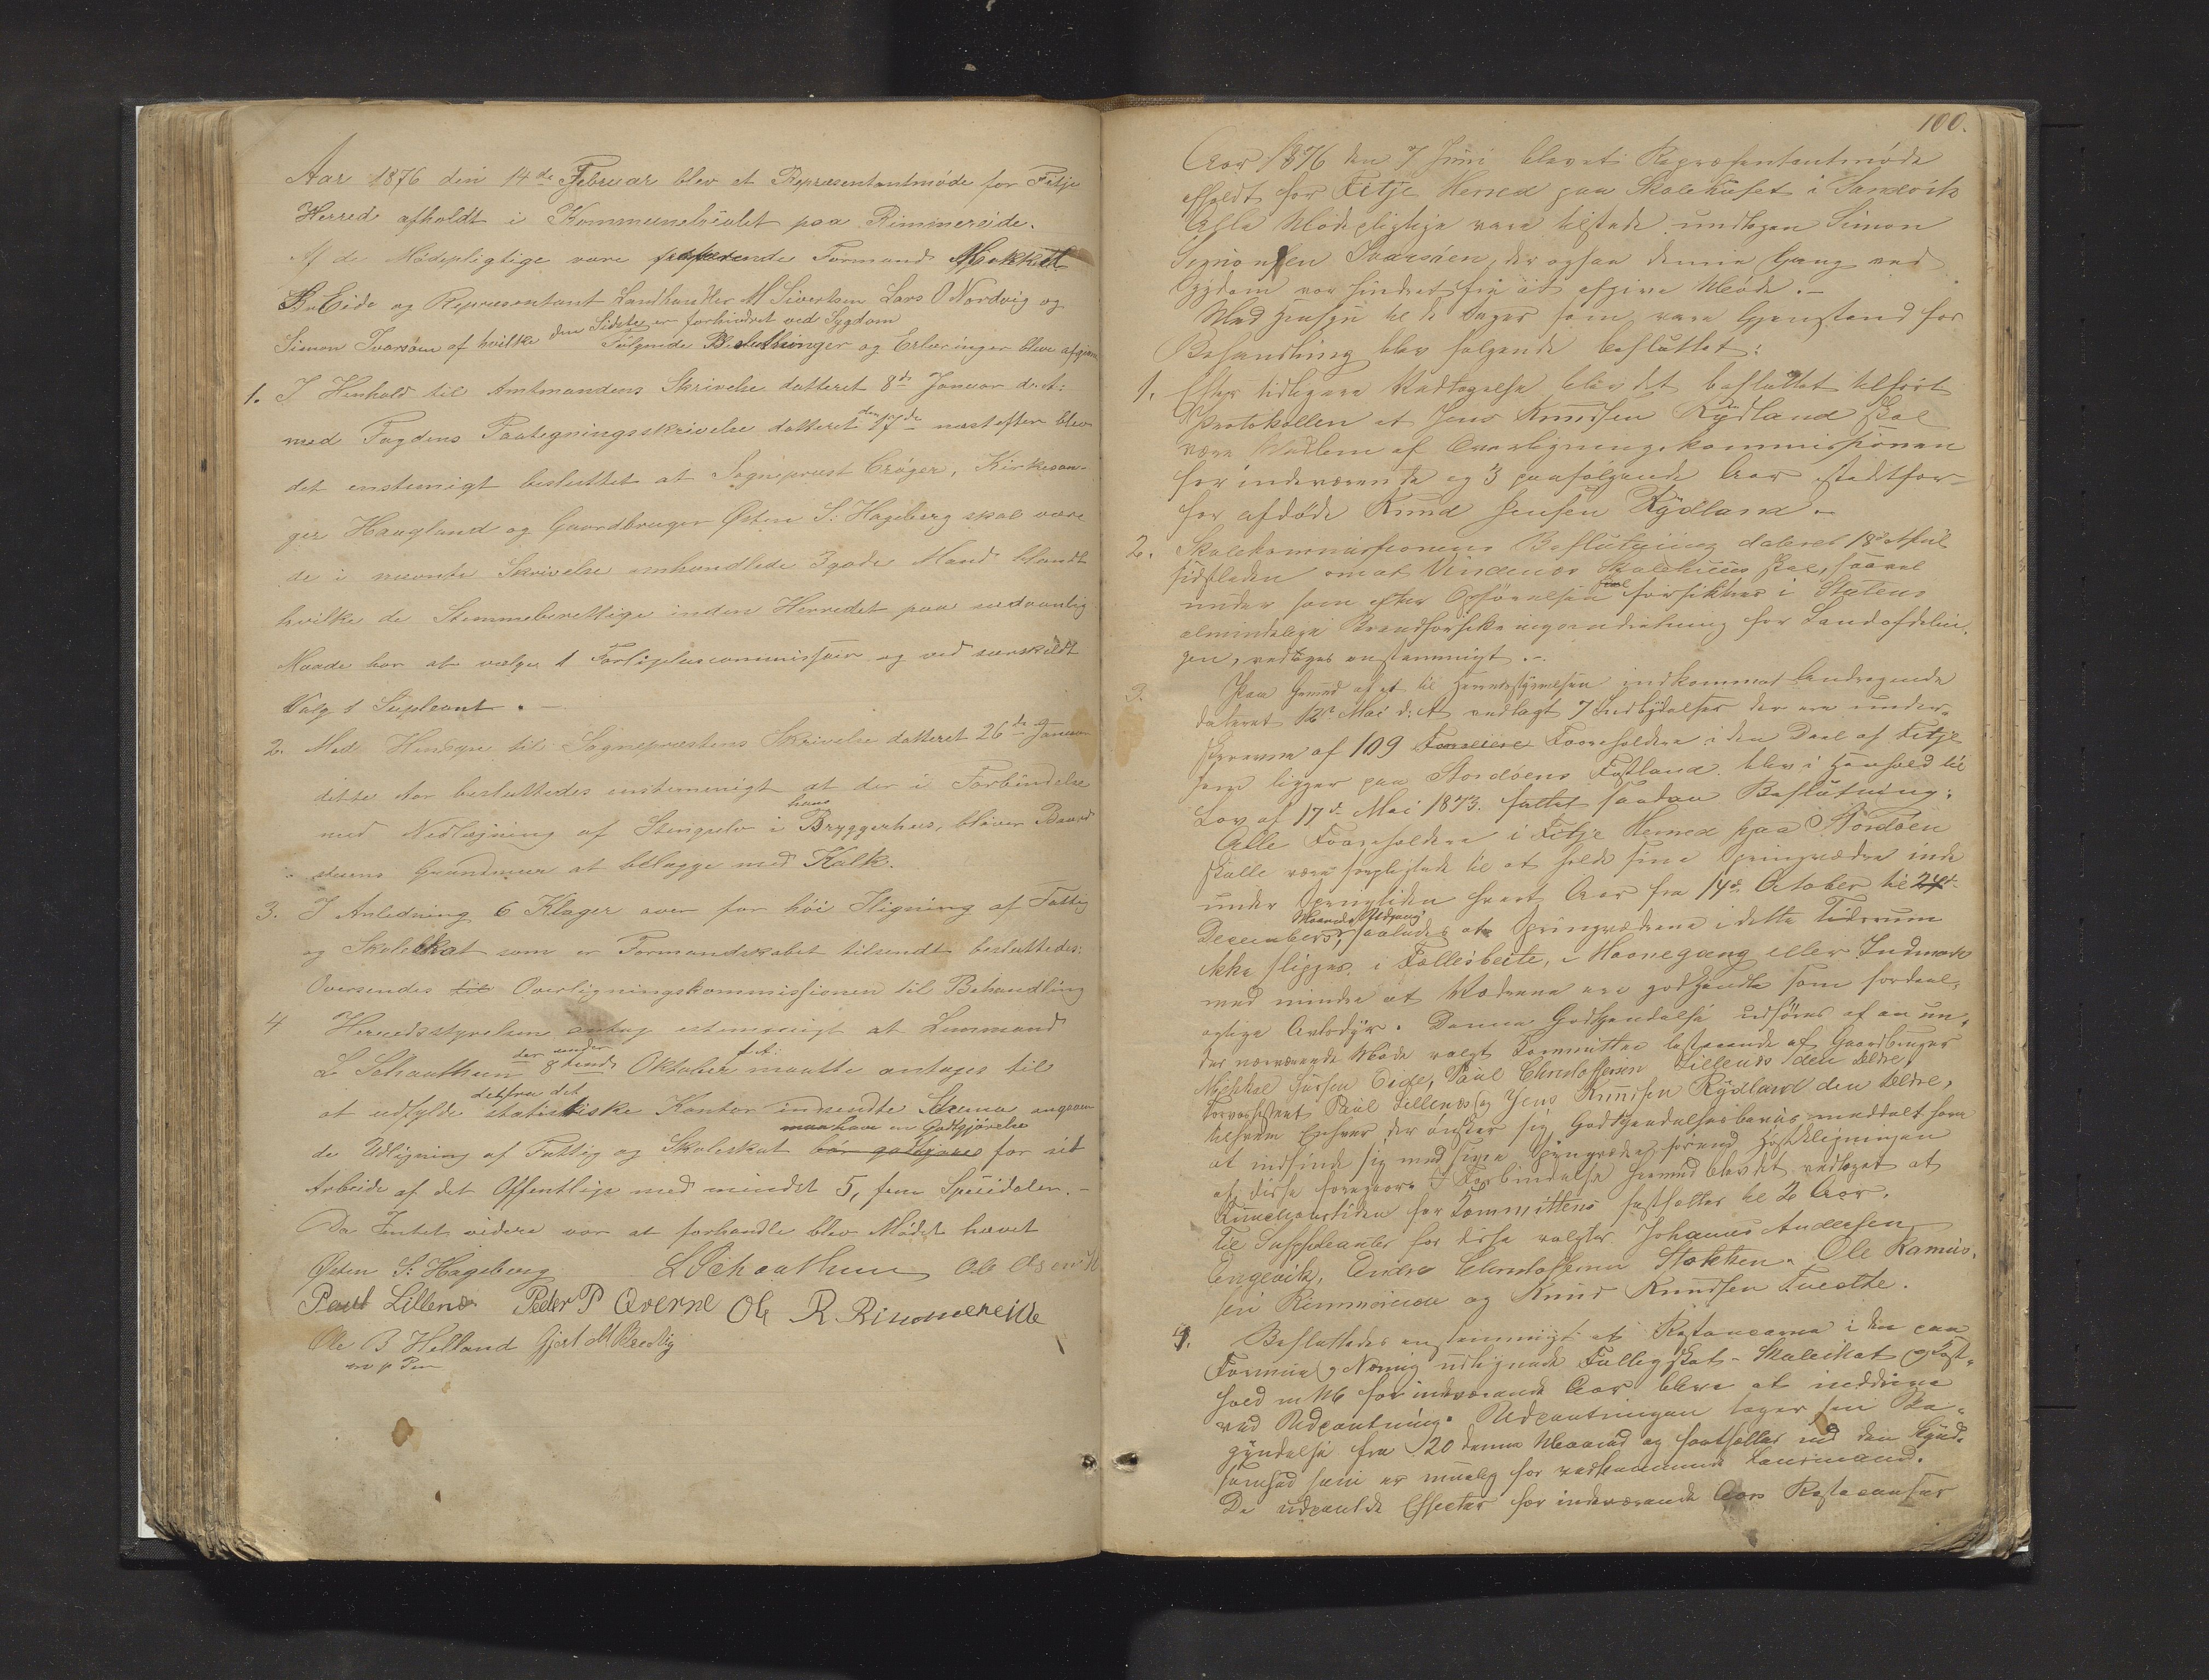 Aar 1876 den 14de Februar blev et Repræsentantmøde for Fitje
Herred afholdt i Kommunelocalet paa Rimmereide.
Af de Mødepligtige vare fraværende Formand Mikkel
H. Eide og Repræsentant Landhandler M Sivertsen Lars O Nordvig og
Simon Ivarsøen af hvilke den Sidste er forhindret ved Sygdom
Følgende Beslutninger og Erklæringer bleve afgivne
1. I Henhold til Amtmandens Skrivelse datteret 8de Januar d: A:
med Fogdens Paategningsskrivelse datteret den 17de næstefter blev
det enstemigt besluttet at Sogneprest Crøger, Kirkesan-
ger Haugland og Gaardbruger Østen S: Hageberg skal være
de i nævnte Skrivelse omhandlede 3 gode Mænd blandt
hvilke de Stemmeberettige inden Herredet paa sædvanlig
Maade har at vælge 1 Forligelsescommissær og ved særskildt
Valg 1 Supleant. —
2. Med Hensyn til Sognepræstens Skrivelse datteret 26de Januar
dette Aar besluttedes enstemmigt at der i Forbindelse
med Nedlægning af Steengulv i hans Bryggerhus, bliver
Grundmur at belægge med Kalk.
3. I Anledning 6 Klager over for høi Iligning af Fattig
og Skoleskat som er Formandskabet tilsendt besluttedes:
Oversendes til Overligningskommissionen til Behandling
4 Herredsstyrelsen antog estemmigt at Lensmand
L Schaathun der under 8tende Oktober f. A: maatte antages til
at udfylde det fra det statistiske Kontor indsendte Skema angaaen
de Udligning af Fattig og Skoleskat maa have en Godtgjørelse for sit
Arbeide af det Offentlige med mindst 5, fem Speciedaler. —
Da Intet videre var at forhandle blev Mødet hævet
Østen S: Hageberg L Schaathun Ole
Paul Lillenes Peder P Qverne Ole R. Rimmereide
Ole B Helland Gjert M
m p Pen
100.
Aar 1876 den 7 Juni blev et Repræsentantmøde
afholdt for Fitje Herred paa Skolehuset i Sandvik
Alle Mødepligtige vare tilstede undtagen Simon
Simonsen Ivarsøen, der ogsaa denne Gang ved
Sygdom var hindret fra at afgive Møde. —
Med Hensyn til de Sager som vare Gjenstand for
Behandling blev følgende besluttet:
1. Efter tidligere Vedtagelse blev det besluttet tilført
Protokollen at Jens Knudsen Rydland skal
være Medlem af Overligningskommissionen
for indeværende og 3 paafølgende Aar istedetfor
for afdøde Knud Jensen Rydland. —
2. Skolekommissionens Beslutning dateret 18de
sidstleden om at Vindenes Skolehuus skal, saavel
under som efter Opførelsen forsikkres i Statens
almindelige Brandforsikringsindretning for Landafdelin-
gen, vedtoges enstemmigt. —
3. Paa Grund af et til Herredsstyrelsen indkommet Andragende
dateret 12te Mai d: A vedlagt 7 Indbydelser der ere under-
skrevne af 109 Faareholdere i den Deel af Fitje
som ligger paa Stordøens Fastland blev i Henhold til
Lov af 17de Mai 1873 fattet saadan Beslutning:
Alle Faareholdere i Fitje Herred paa Stordøen
skulle være forpligtede til at holde sine Springvædre inde
under Sprengtiden hvert Aar fra 14de October til
Decembers Maaneds Udgang, saaledes at Springvædrene i dette Tidsrum
ikke slippes i Fællesbeite, i Havnegang eller Indmark
med mindre at Vædrene ere godkjendte som fordeel-
agtige Avlsdyr. Denne Godkjendelse udføres af en un-
der nærværende Møde valgt Committee bestaaende af Gaardbruger
Mikkel Eide, Paul Christofersen Lillenes den ældre,
Forvæsenet Paul Lillenes og Jens Knudsen Rydland den ældre,
tilfredse Enhver der ønsker sig Godkjendelsesbeviis meddelt have
at indfinde sig med sine Springvædre førend Høstklipningen
af disse foregaar. I Forbindelse hermed blev det vedtaget at
Functionstiden for Committeen fastsættes til 2 Aar.
Til Suppleanter for disse valgtes Johannes Andersen
Engevik, Andres Christofersen Stokken. Ole Rasmus-
sen Rimmereide og Knud Knudsen Tveite.
4. Besluttedes enstemmigt at Restancerne i den paa
Formue og Næring udlignede Fattigskat – Skoleskat
for indeværende Aar blive at inddrive
ved Udpantning. Udpantningen tager sin Be-
gyndelse fra 20 denne Maaned og fortsættes ved den Skynd-
somhed som er muelig for vedkommende Lensmand.
De udpantede Effecter for indeværende Aars Restancer